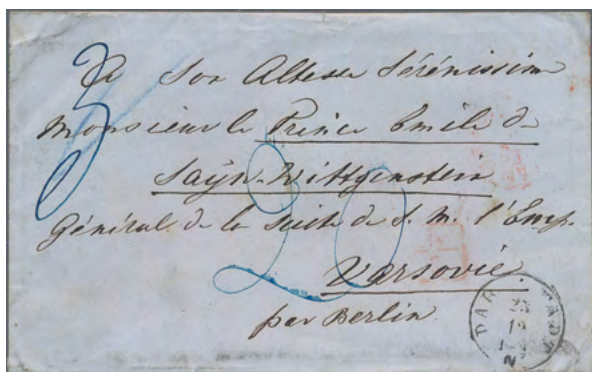 A Son Altesse Sérénissim
Monsieur le Prince Emile de
Sayn-Wittgenstein
Général de la Suite de S. M. l'Emp.
Varsovie.
par Berlin.
3
20
23
12